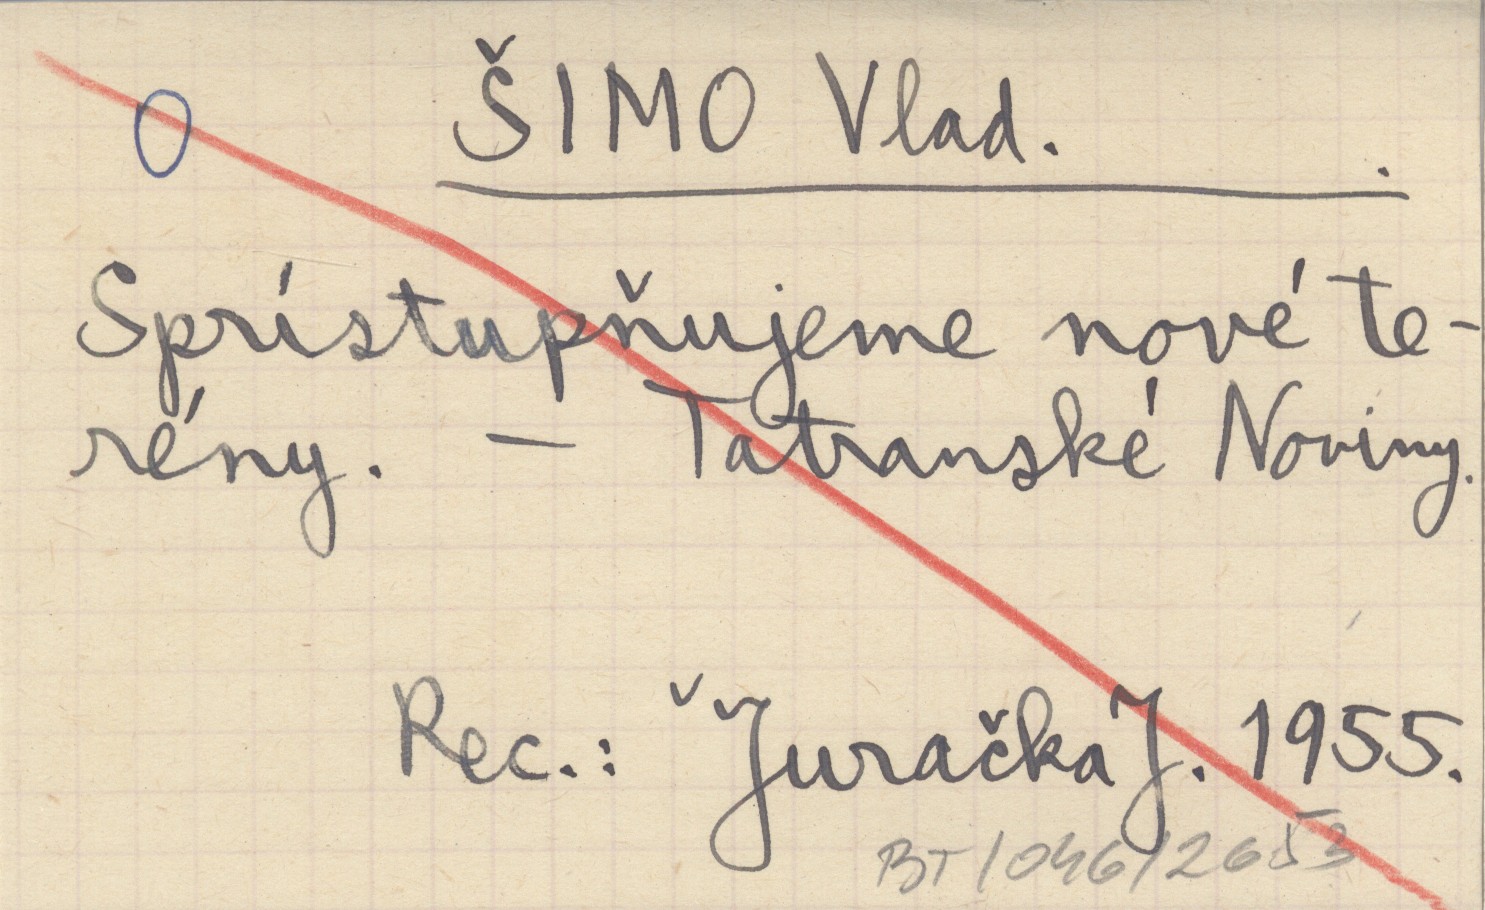 ŠIMO Vlad.
Sprístupňujeme nové te-
rény. — Tatranské Noviny.
Rec.: Juračka J. 1955.
BT/046/2653